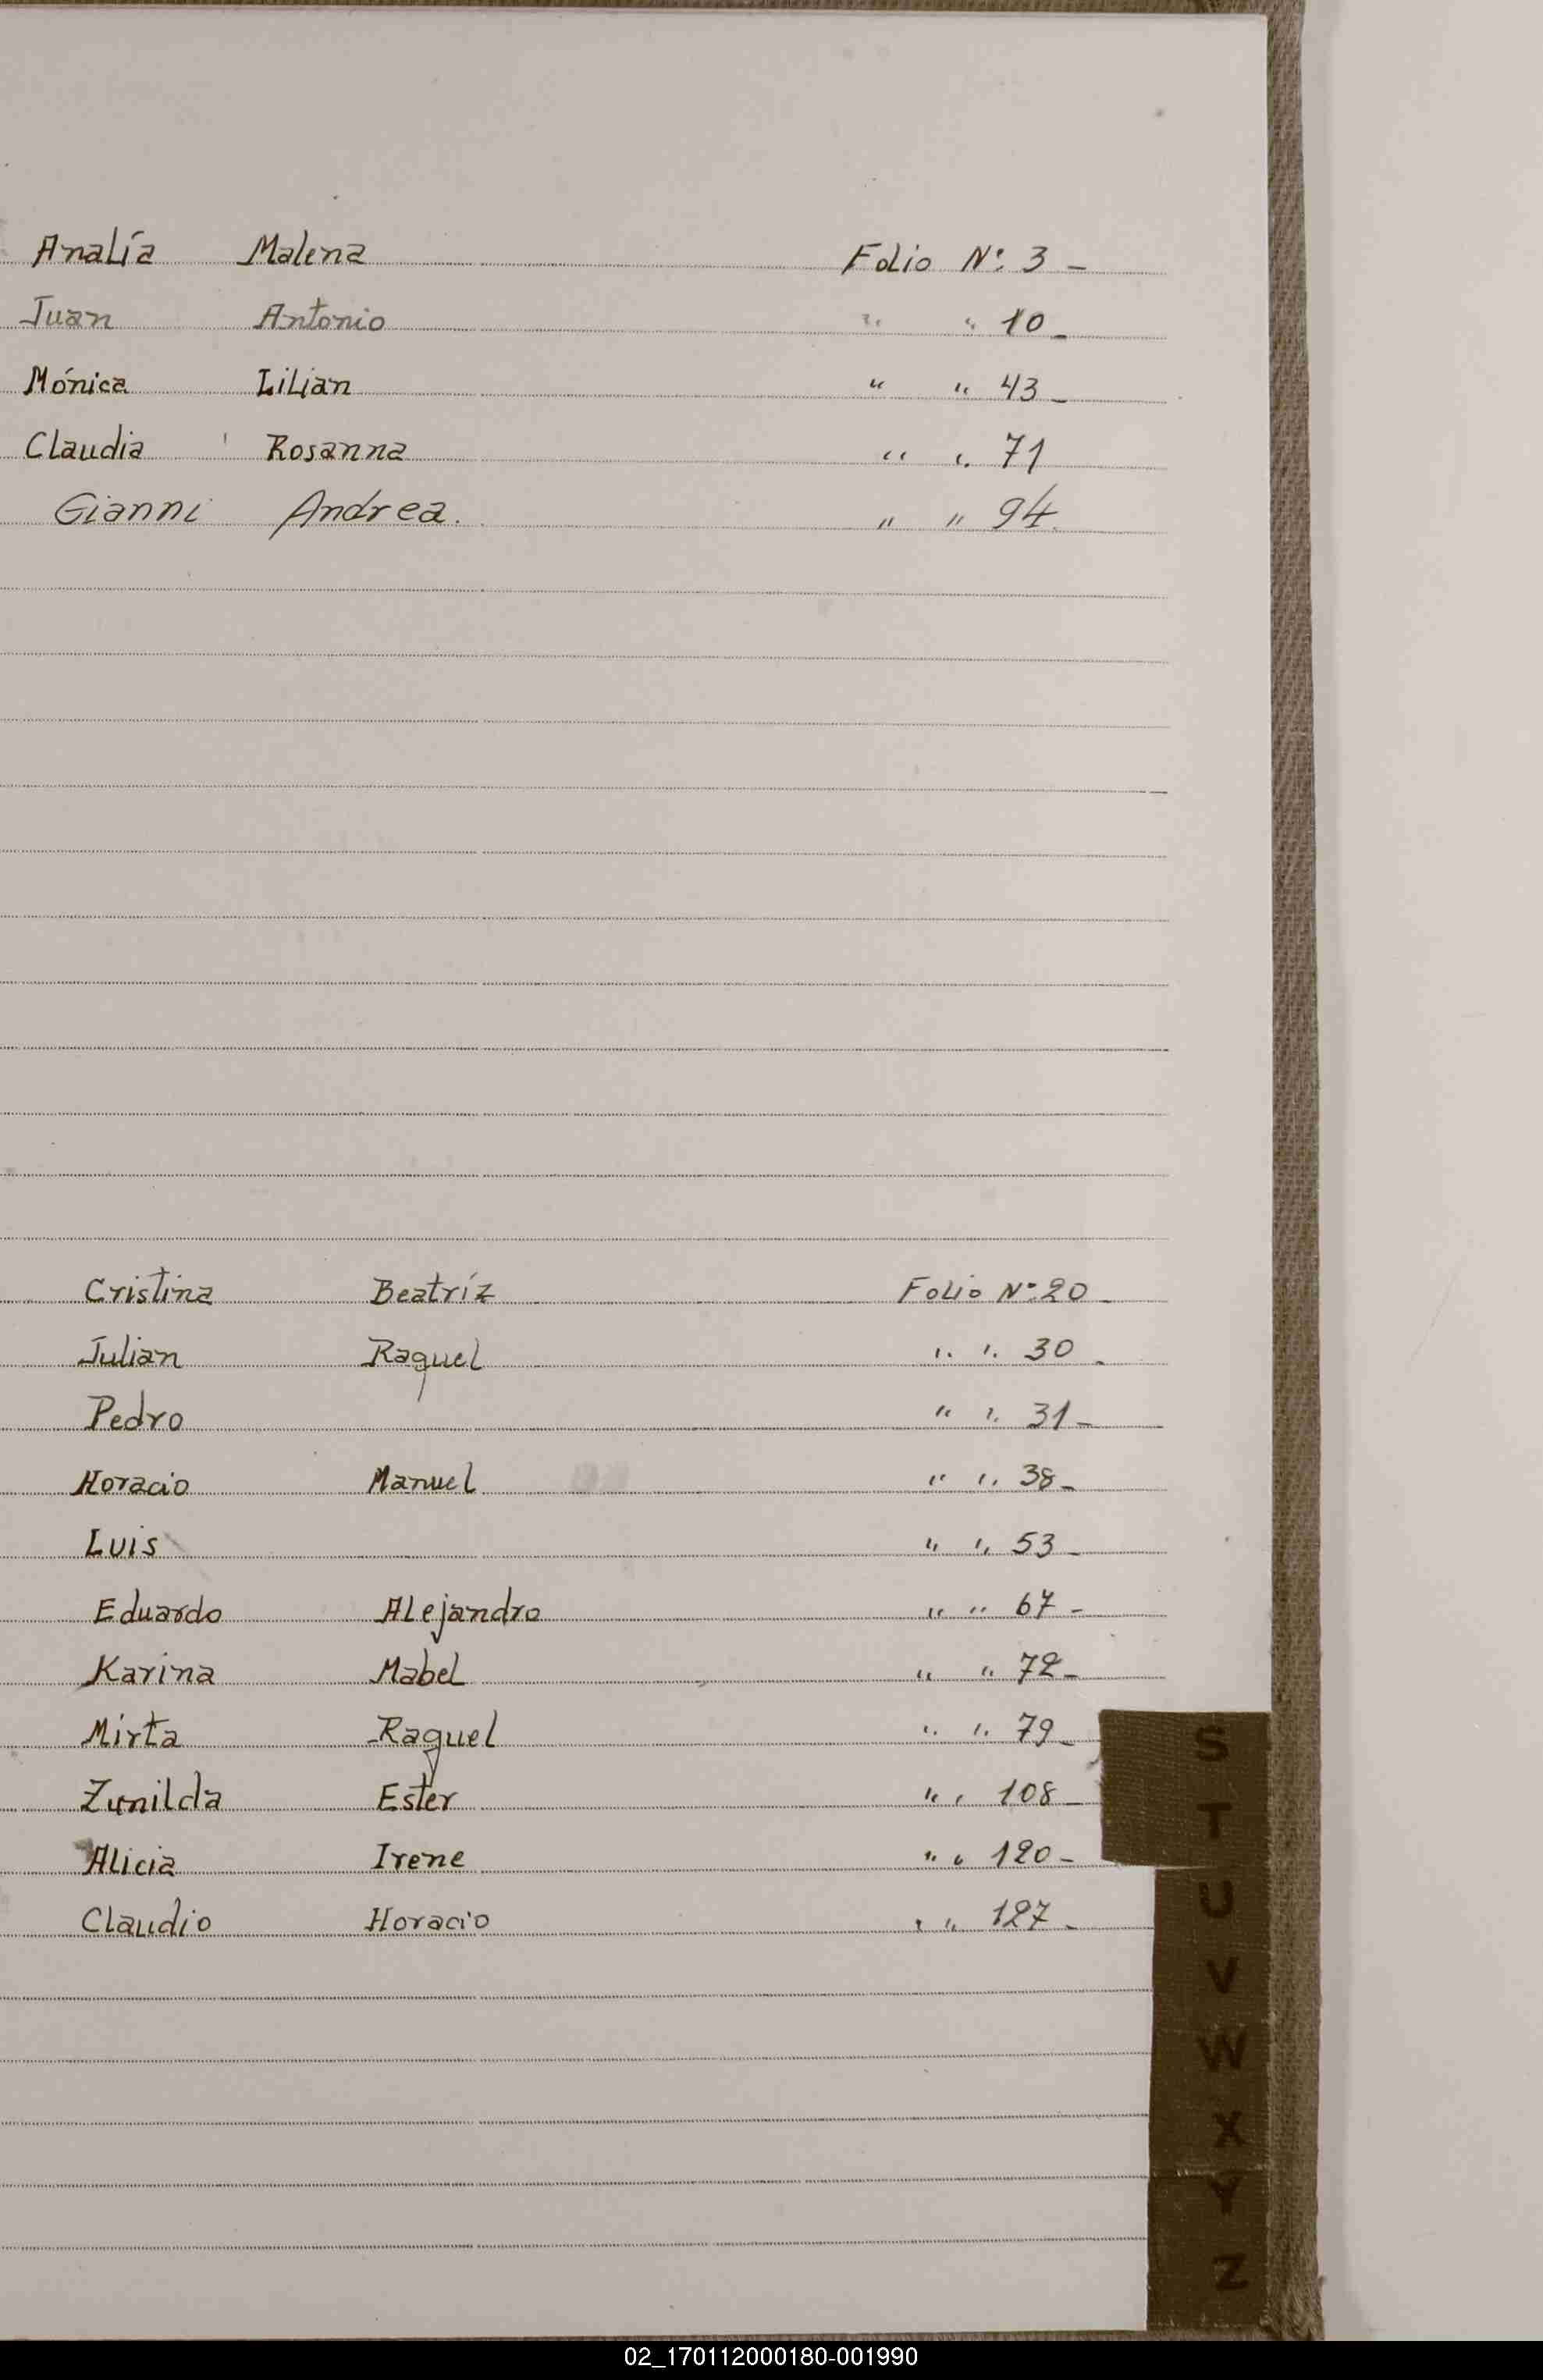 Analía Malena Folio Nº: 3 -
Juan Antonio " " 10 -
Mónica Lilian " " 43 -
Claudia Rosanna " " 71
Gianni Andrea. " " 94.
Cristina Beatríz Folio Nº: 20 -
Julian Raquel " " 30 -
Pedro " " 31 -
Horacio Manuel " " 38 -
Luis " " 53 -
Eduardo Alejandro " " 67 -
Karina Mabel " " 72 -
Mirta Raquel " " 79 -
Zunilda Ester " " 108 -
Alicia Irene " " 120 -
Claudio Horacio " " 127 -
S
T
U
V
W
X
Y
Z
02_170112000180-001990